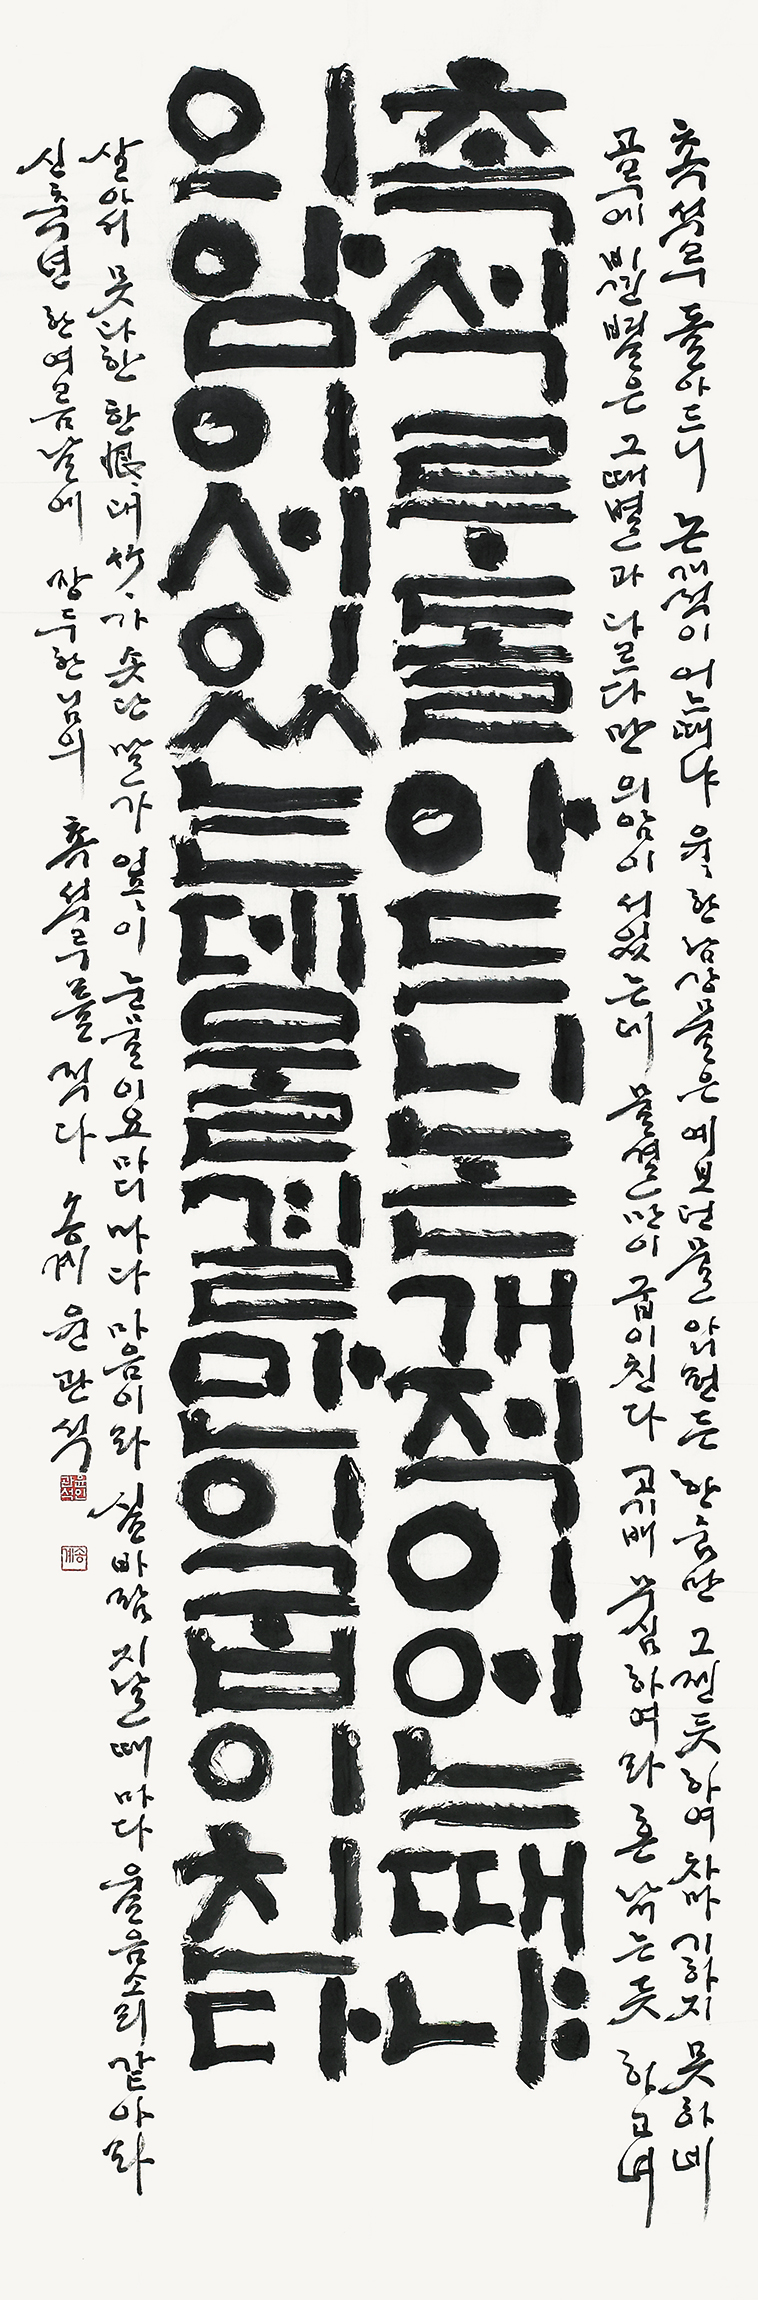 촉석루 돌아드니 논개적이 어느때냐 유〻한 남강물은 예보던물 한숨만 그젠듯하여 차마 기하지 못하네
고목에 비낀별은 그때별과 다르다만 의암이 서있는데 물결만이 굽이친다 고기배 무심하여라 혼 낚는듯 하고녀
촉석루돌아드니논개적이어느때냐
의암이서있는데물결만이굽이친다
살아서 못다한 한恨、대竹、가 솟단말가 잎〻이 눈물이요 마디마다 마음이라 실바람 지날때마다 울음소리 같아라
신축년 한여름날에 장두한님의 촉석루를 적다 송계 윤관석
송계